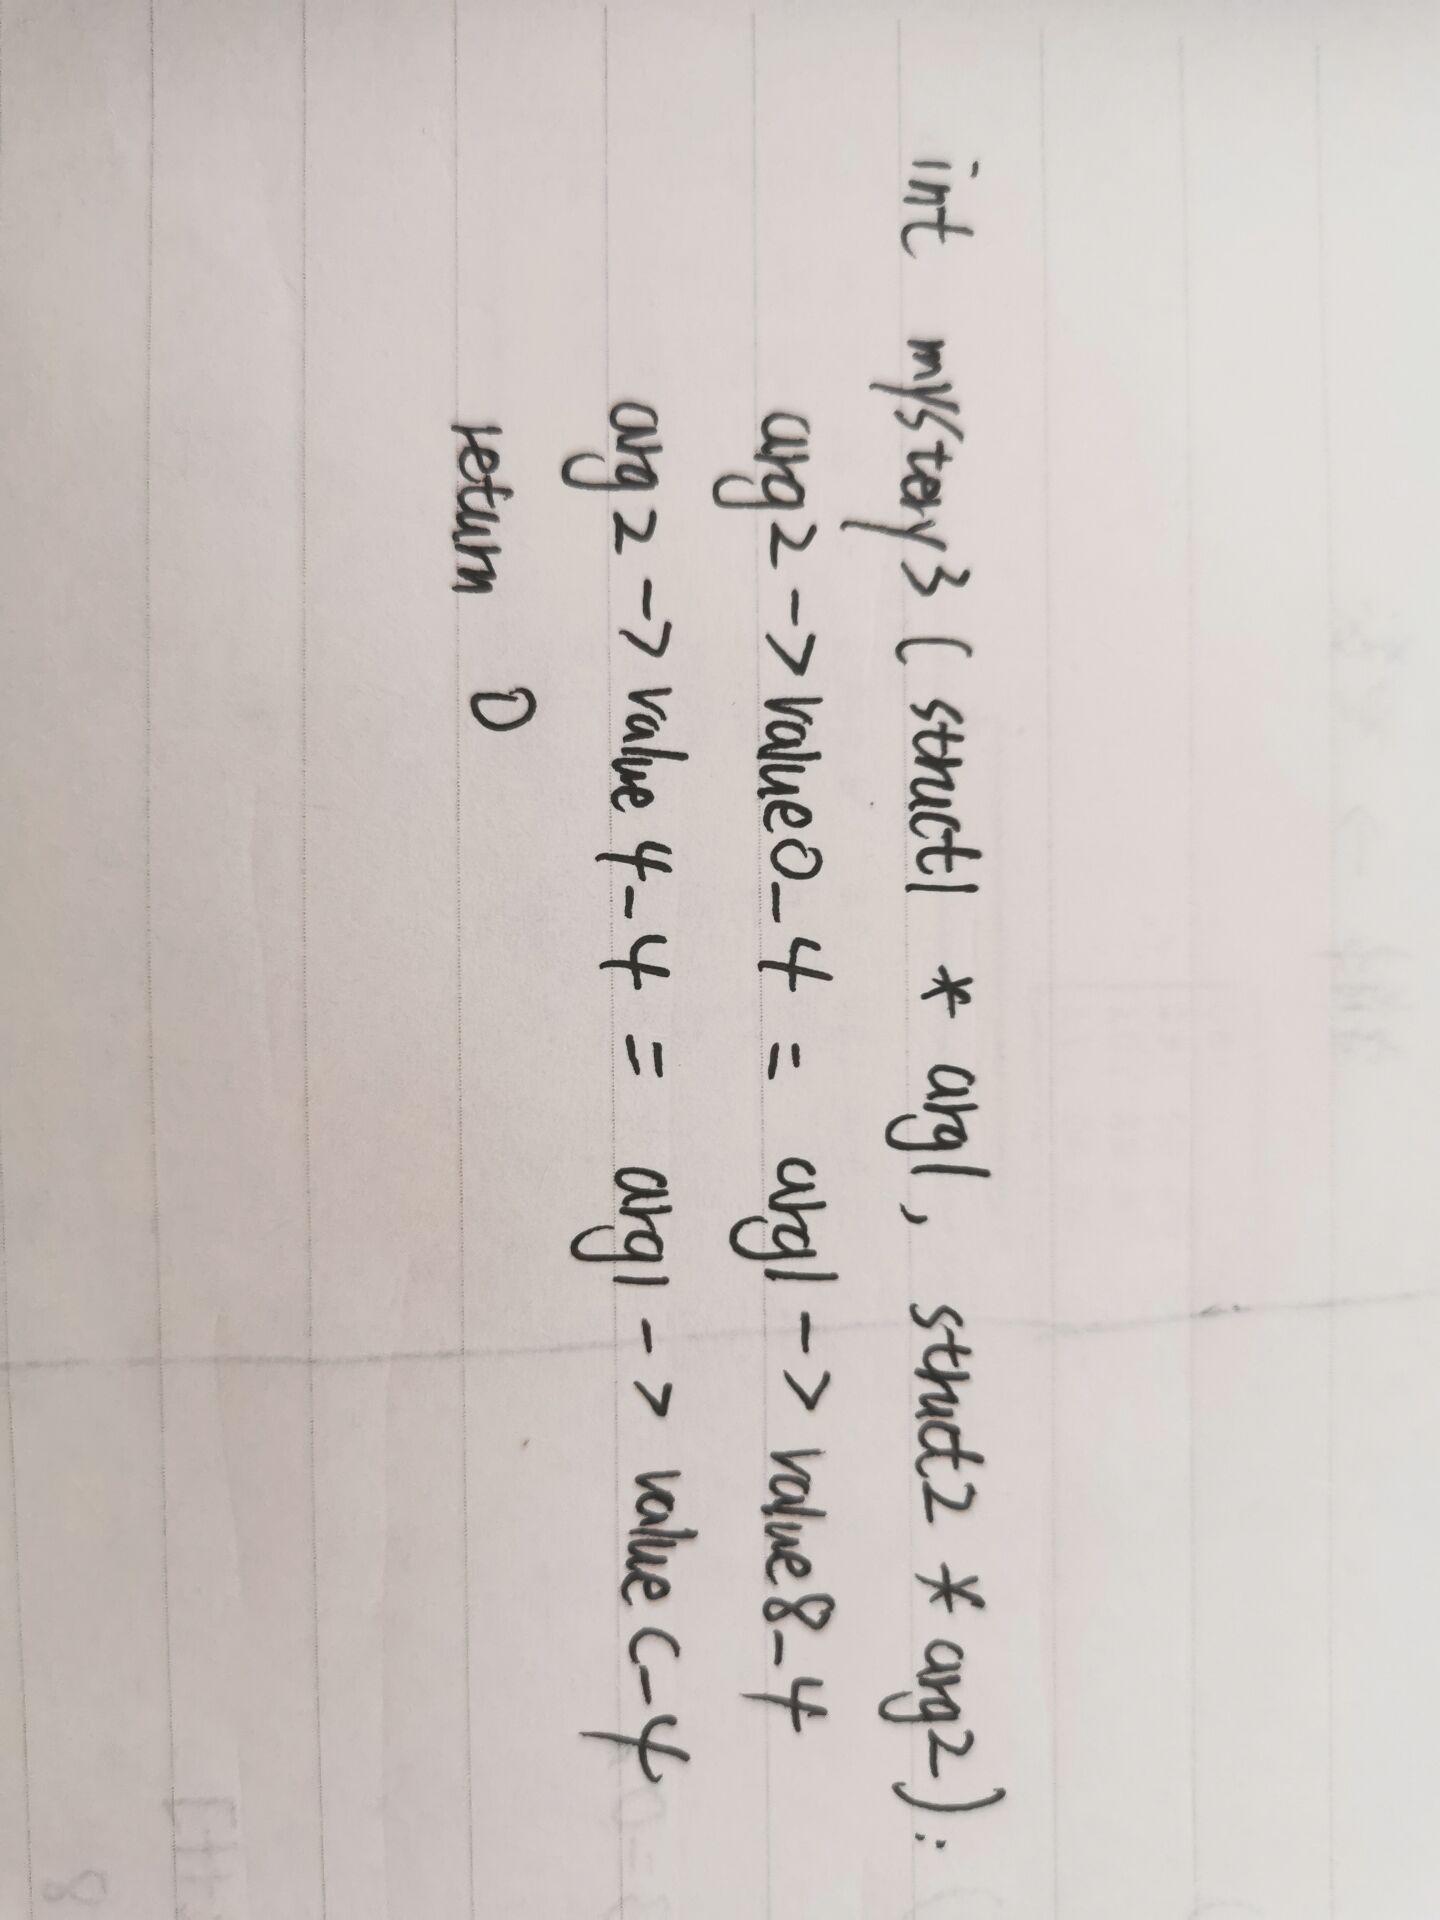 int mystery3 ( struct1 * arg1, struct2 * arg2):
arg2 -> value0_4 = arg1 -> value8_4
arg2 -> value 4_4 = arg1 -> value C_4
return 0